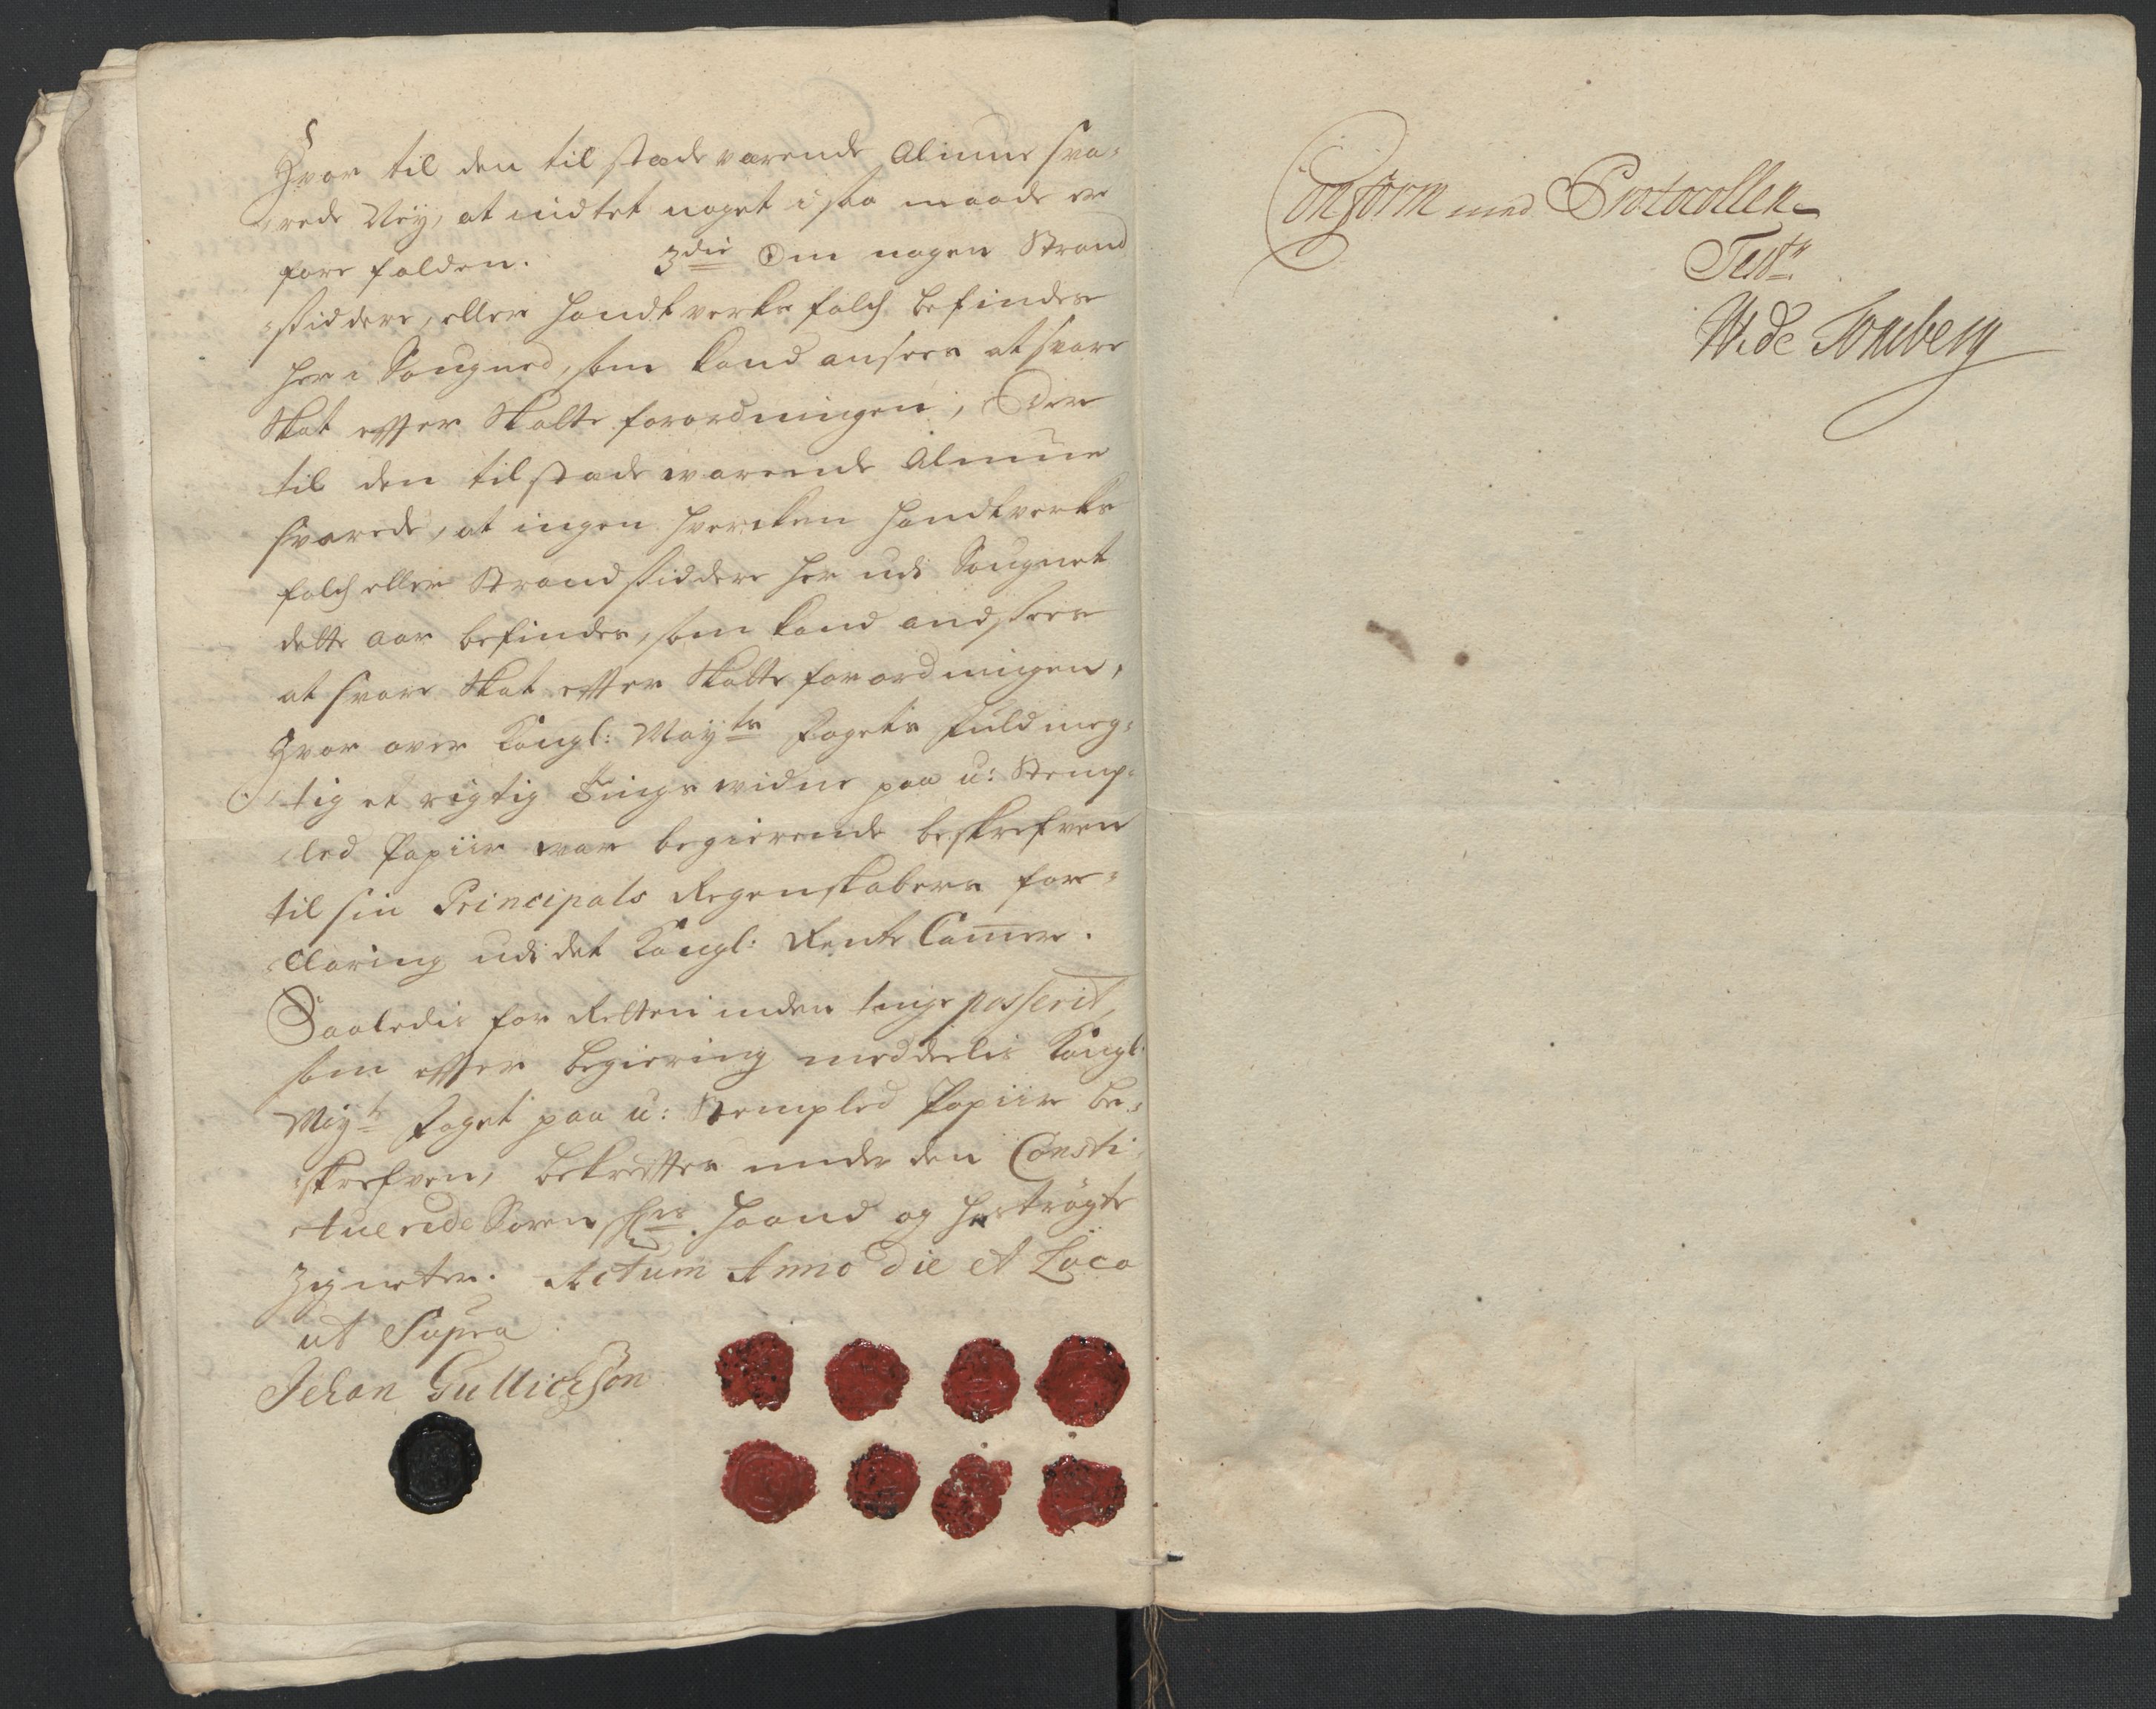 Hvor til den tilstædeværende Almue sva-
rede Ney, at indtet noget i saa maade er
fore falden. 3die Om nogen Strand
siddere, eller Handtverks folch befindes
her i Sougned, som kand ansees at svare
Skat efter Skatte forordningen, Der
til den tilstæde værende Almue
svarede, at ingen hvercken Handtverks
folch eller Strandsiddere her udi Sougnet
dette aar befindes, som kand andsees
at svare Skat efter Skatte forordningen,
Hvor over Kongl: Mayts Fogets Fuldmeg-
tig et rigtig Tings widne paa u: Stemp-
led Papiir var begierende beskrefven
til sin Principals Regenskabers for-
klaring udi det Kongl: Rente Camer.
Saaledis for Retten inden tinge passerit,
som efter begiering meddeelis Kongl:
Mayts Foget paa u: Stempled Papiir be-
skrefven, bekrefter under den Consti-
tuerede Soren Schr: Haand og hostrøgte
Zigneter. Actum Anno die et Loco
ut Supra
Johan Gullichsøn
Conform med Protocollen
Test:
W: de Tonsberg